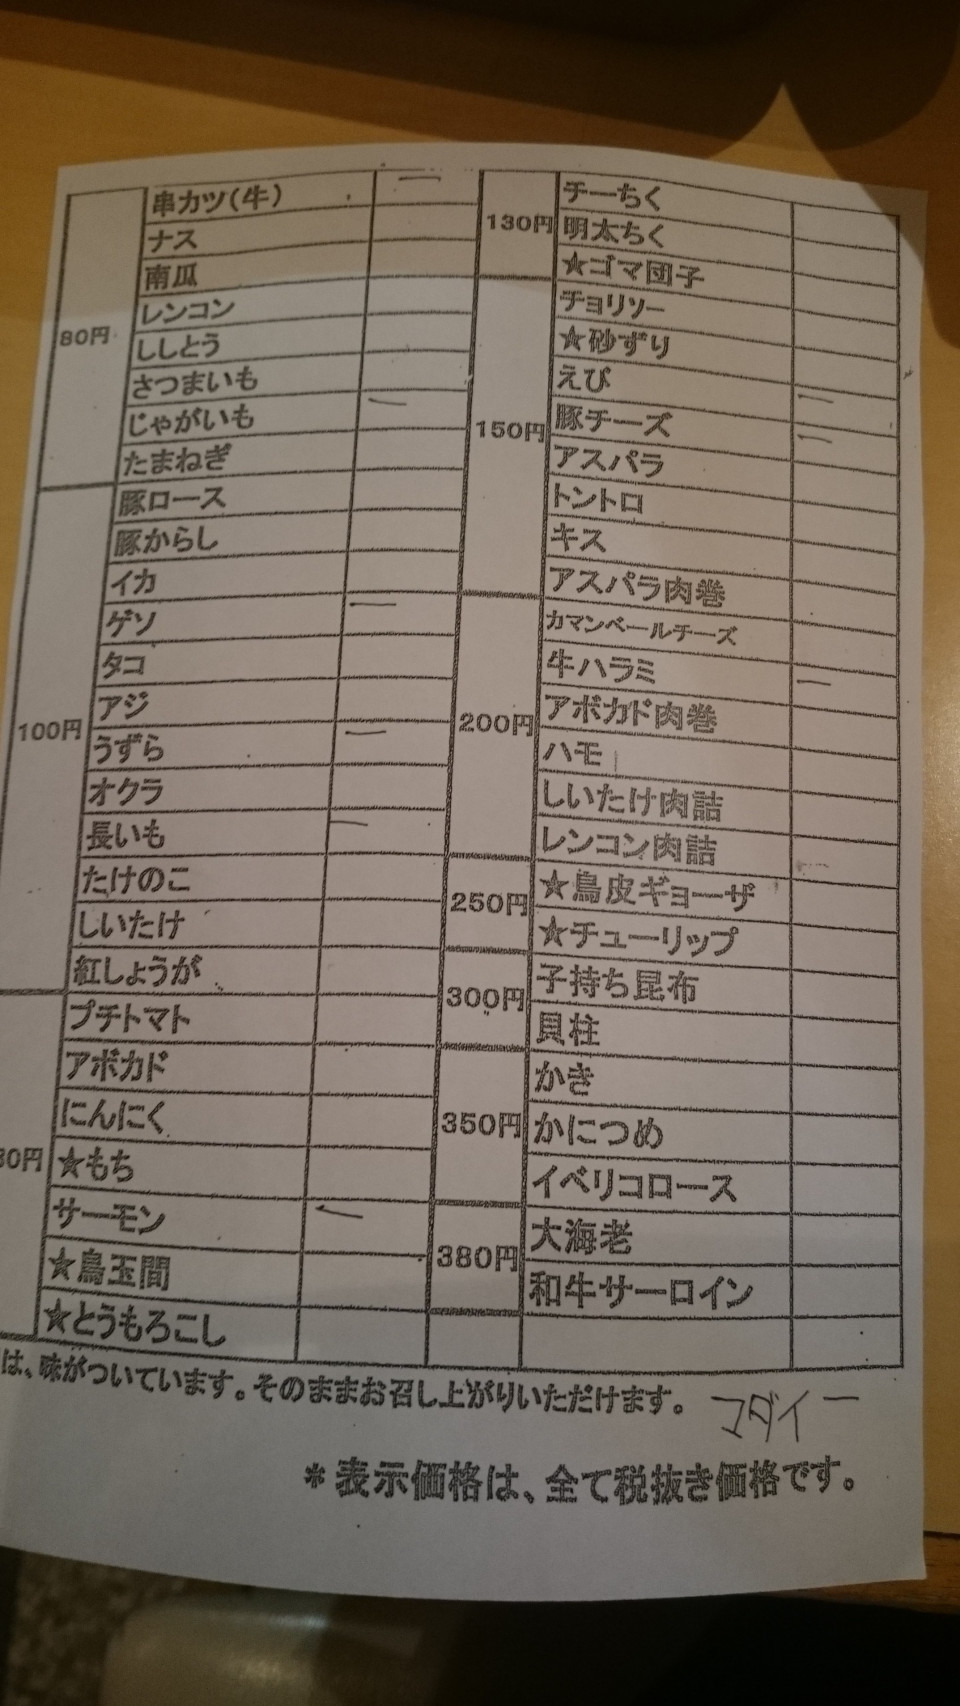 80円
串カツ(牛) 一
ナス
南瓜
レンコン
ししとう
さつまいも
じゃがいも 一
たまねぎ
100円
豚ロース
豚からし
イカ
ゲソ 一
タコ
アジ
うずら 一
オクラ
長いも 一
たけのこ
しいたけ
紅しょうが
30円
プチトマト
アボカド
にんにく
★もち
サーモン 一
★鳥玉間
★とうもろこし
130円
チーちく
明太ちく
★ゴマ団子
150円
チョリソー
★砂ずり
えび 一
豚チーズ 一
アスパラ
トントロ
キス
アスパラ肉巻
200円
カマンベールチーズ
牛ハラミ 一
アボカド肉巻
ハモ
しいたけ肉詰
レンコン肉詰
250円
★鳥皮ギョーザ
★チューリップ
300円
子持ち昆布
貝柱
350円
かき
かにつめ
イベリコロース
380円
大海老
和牛サーロイン
は、味がついています。そのままお召し上がりいただけます。
コダイ 一
＊表示価格は、全て税抜き価格です。